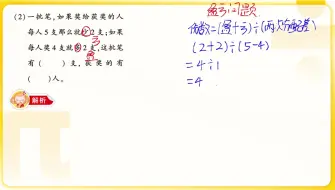 (2)一批笔,如果奖给获奖的人
每人5支那么就少2支;如果
每人奖4支就多2支,这批笔
有( )支,获奖的有
( )人。
解析
盈亏问题
份数=(盈+亏)÷(两次分配差)
(2+2)÷(5-4)
=4÷1
=4
亏
盈